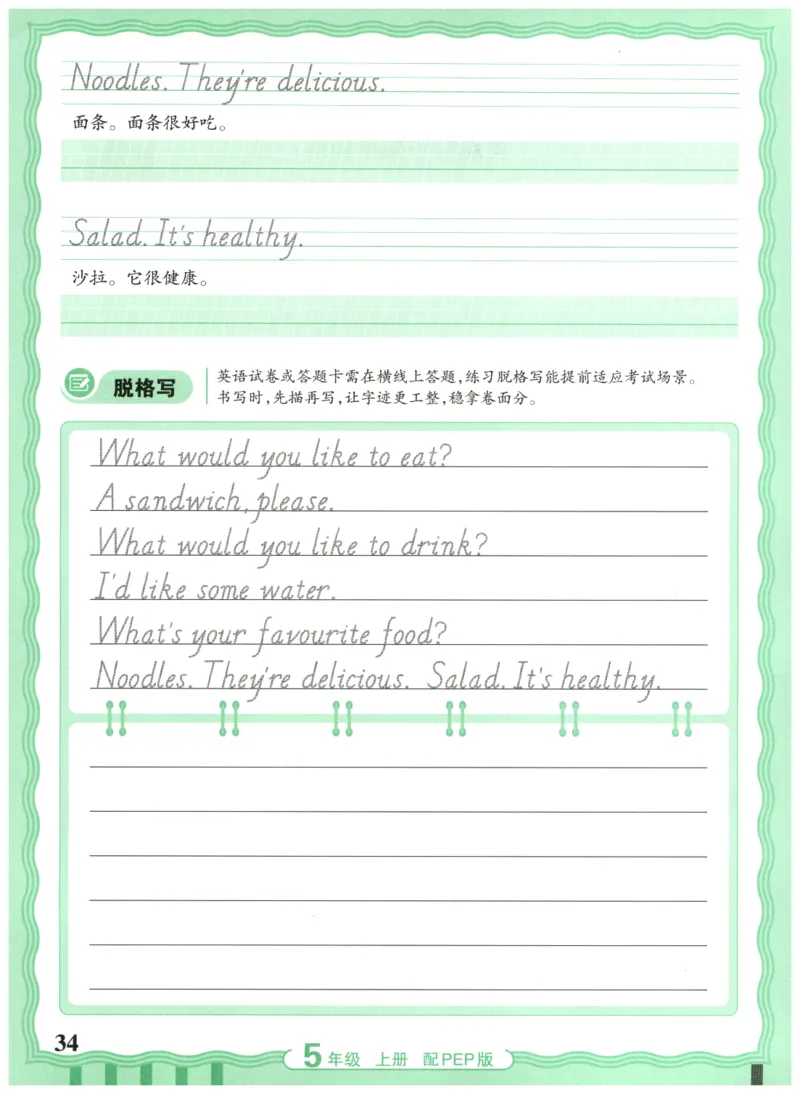 Noodles. They're delicious.
面条。面条很好吃。
Salad. It's healthy.
沙拉。它很健康。
脱格写
英语试卷或答题卡需在横线上答题,练习脱格写能提前适应考试场景。
书写时,先描再写,让字迹更工整,稳拿卷面分。
What would you like to eat?
A sandwich, please.
What would you like to drink?
I'd like some water.
What's your favourite food?
Noodles. They're delicious. Salad. It's healthy.
34
5年级 上册 配PEP版